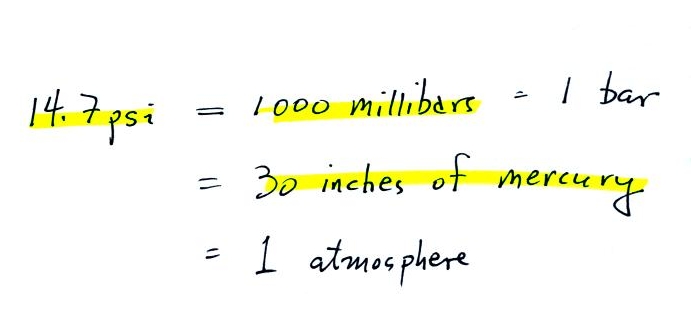 14.7 psi = 1000 millibars = 1 bar
= 30 inches of mercury
= 1 atmosphere